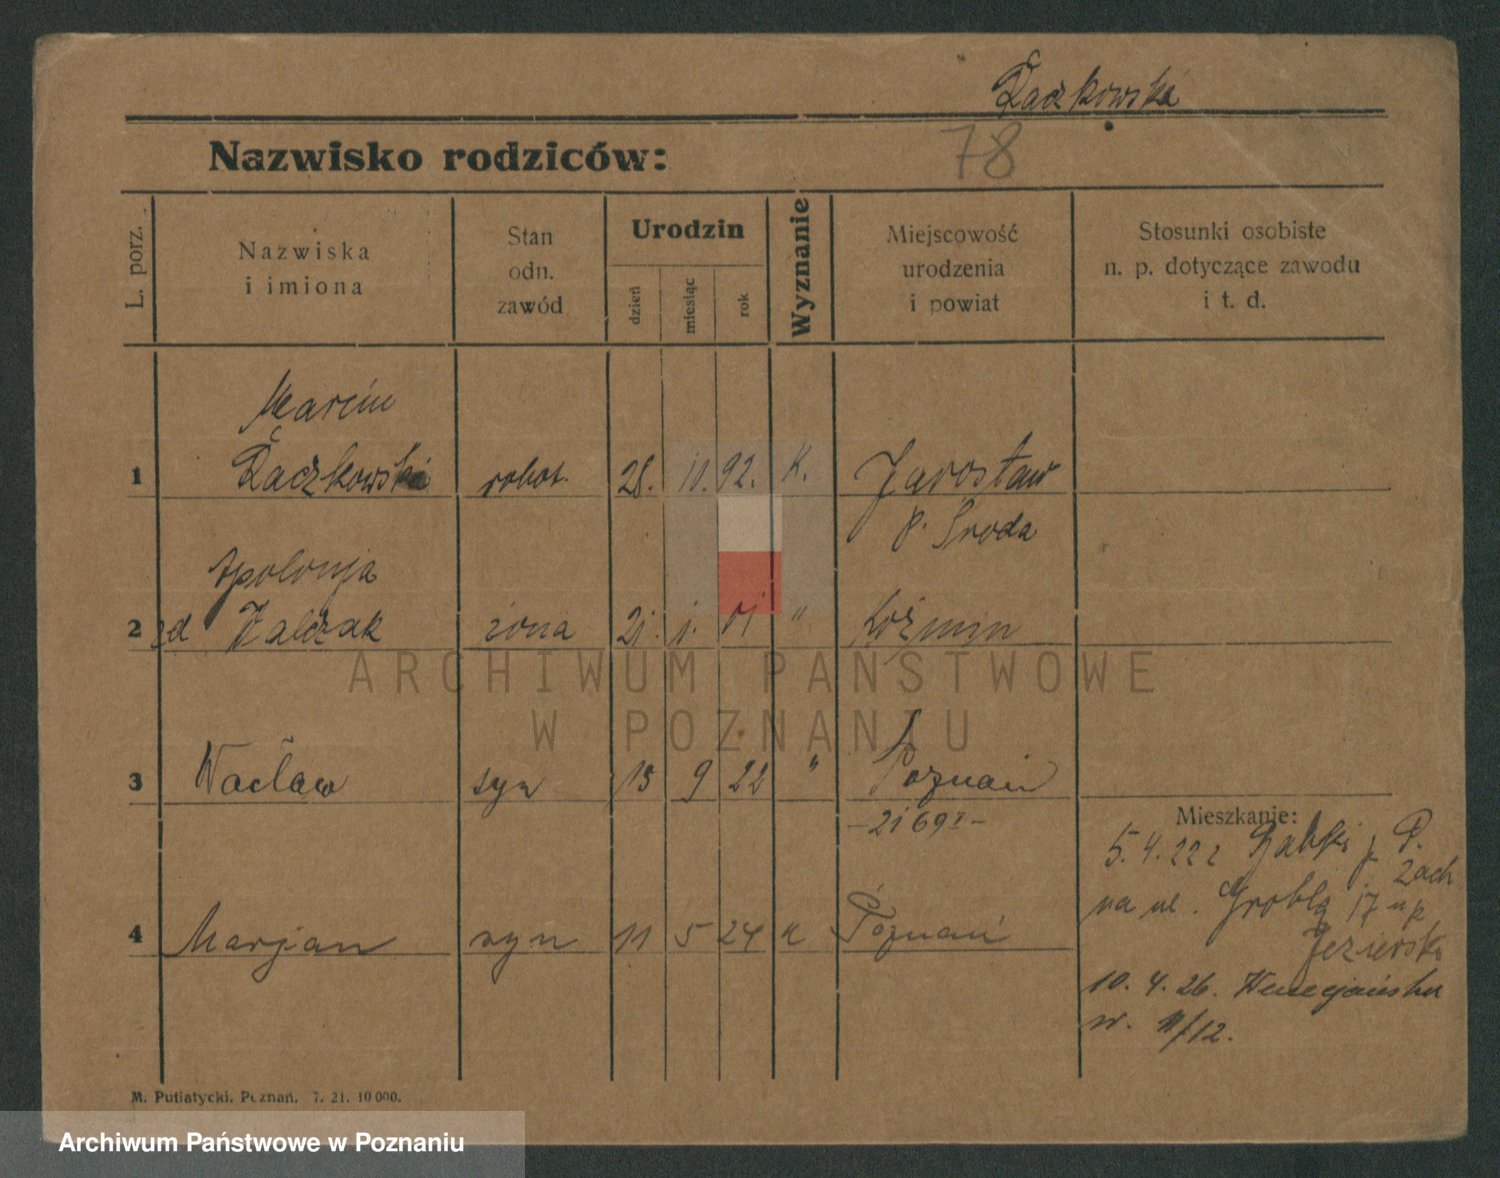 Raczkowski
78
Nazwisko rodziców:
L. porz.
Nazwiska
i imiona
Stan
odn.
zawód
Urodzin
dzień
miesiąc
rok
Wyznanie
Miejscowość
urodzenia
i powiat
Stosunki osobiste
n. p. dotyczące zawodu
i t. d.
Marcin
1 Raczkowski robot. 28. 11. 92. K. Jarosław
p. Sroda
Apolonja
2 zd Walczak żona 21. 1. 01 " Koźmin
ARCHIWUM PAŃSTWOWE
W POZNANIU
3 Wacław syn 15 9 22 " Poznań
-2169I-
Mieszkanie:
5.4.22 z Gąbki p. P.
Zach
na ul. Grobla 17 u p
Jezierski
4 Marjan syn 11 5 24 k Poznań
10. 4. 26. Wenecjańska
w. 11/12.
M. Putiatycki. Poznań. 7. 21. 10 000.
Archiwum Państwowe w Poznaniu